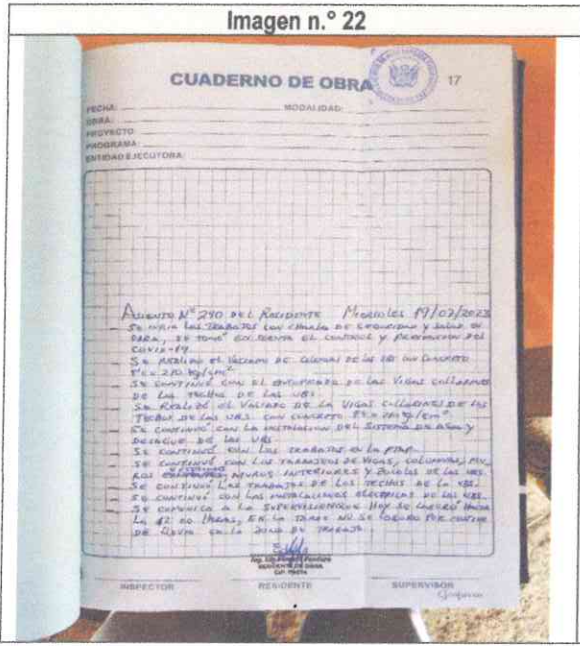 Imagen n.° 22
CUADERNO DE OBRA
17
FECHA: MODALIDAD:
OBRA:
PROYECTO:
PROGRAMA:
ENTIDAD EJECUTORA:
Asiento N° 290 del Residente Miercoles 19/07/2023
Se inicia los trabajos con charla de seguridad y salud en
obra, se tomó en cuenta el control y prevencion del
Covid-19.
Se realizo el vaciado de de las UBS con concreto
f'c = 210 kg/cm²
Se continuó con el encofrado de las vigas collarines
de los techos de las UBS.
Se realizó el vaciado de la vigas collarines de los
techos de las UBS con concreto f'c = 210 kg/cm²
Se continuó con la instalacion del sistema de agua y
desague de las UBS
Se continuó con los trabajos en la PTAP.
Se continuó con los tarrajeos de vigas, columnas, mu-
ros muros interiores y de las UBS.
Se continuó los trabajos de los techos de la UBS.
Se continuó con las instalaciones electricas de las UBS.
Se comunica a la supervision que hoy se laboró hasta
la 12:00 horas, en la tarde no se laboro por
de lluvia en la zona de trabajo.
RESIDENTE DE OBRA
INSPECTOR RESIDENTE SUPERVISOR